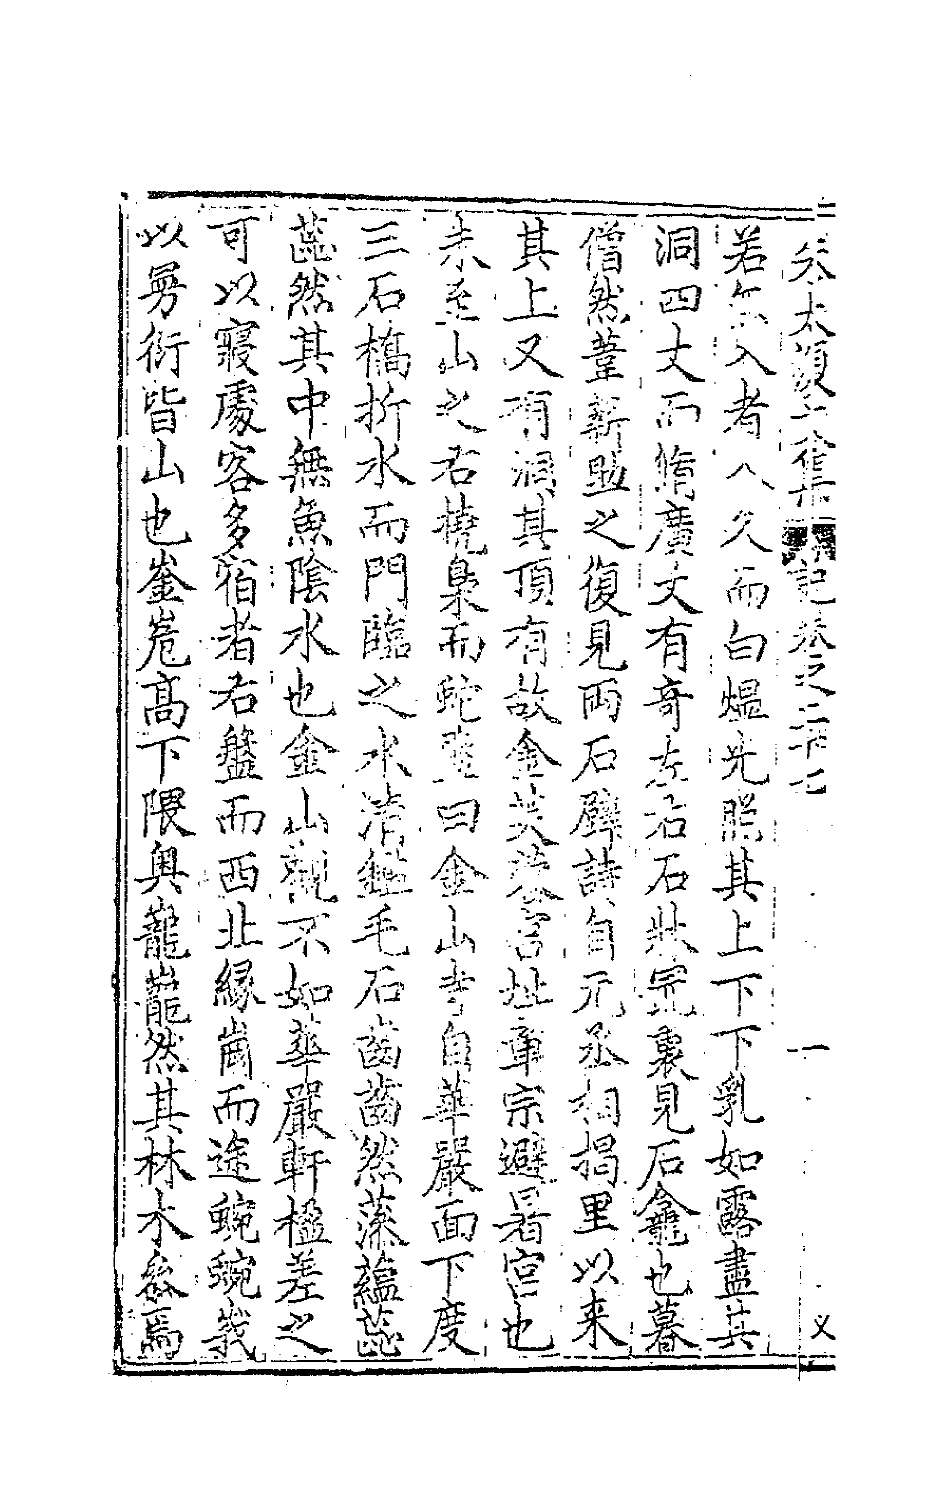 矢太傎六雀集 記卷之二十七 一 义
若缶入者入久而白熅光照其上下下乳如露盡其
洞四丈而脩廣丈有奇左右石狀宂裏見石龕也暮
僧然葦薪照之復見兩石壁詩自元丞相揭里以来
其上又有洞其頂有故金芙蓉宮址章宗避暑宮也
未至山之右橈梟而蛇蟄曰金山寺自華嚴面下度
三石橋折水而門臨之水清鑑毛石齒齒然藻蘊蕊
蕊然其中無魚陰水也金山觀不如華嚴軒楹差之
可以寢處客多宿者右盤而西北緣崗而途蜿蜿幾
以昜衍皆山也崟嵬高下隈奥巃巃然其林木叅焉